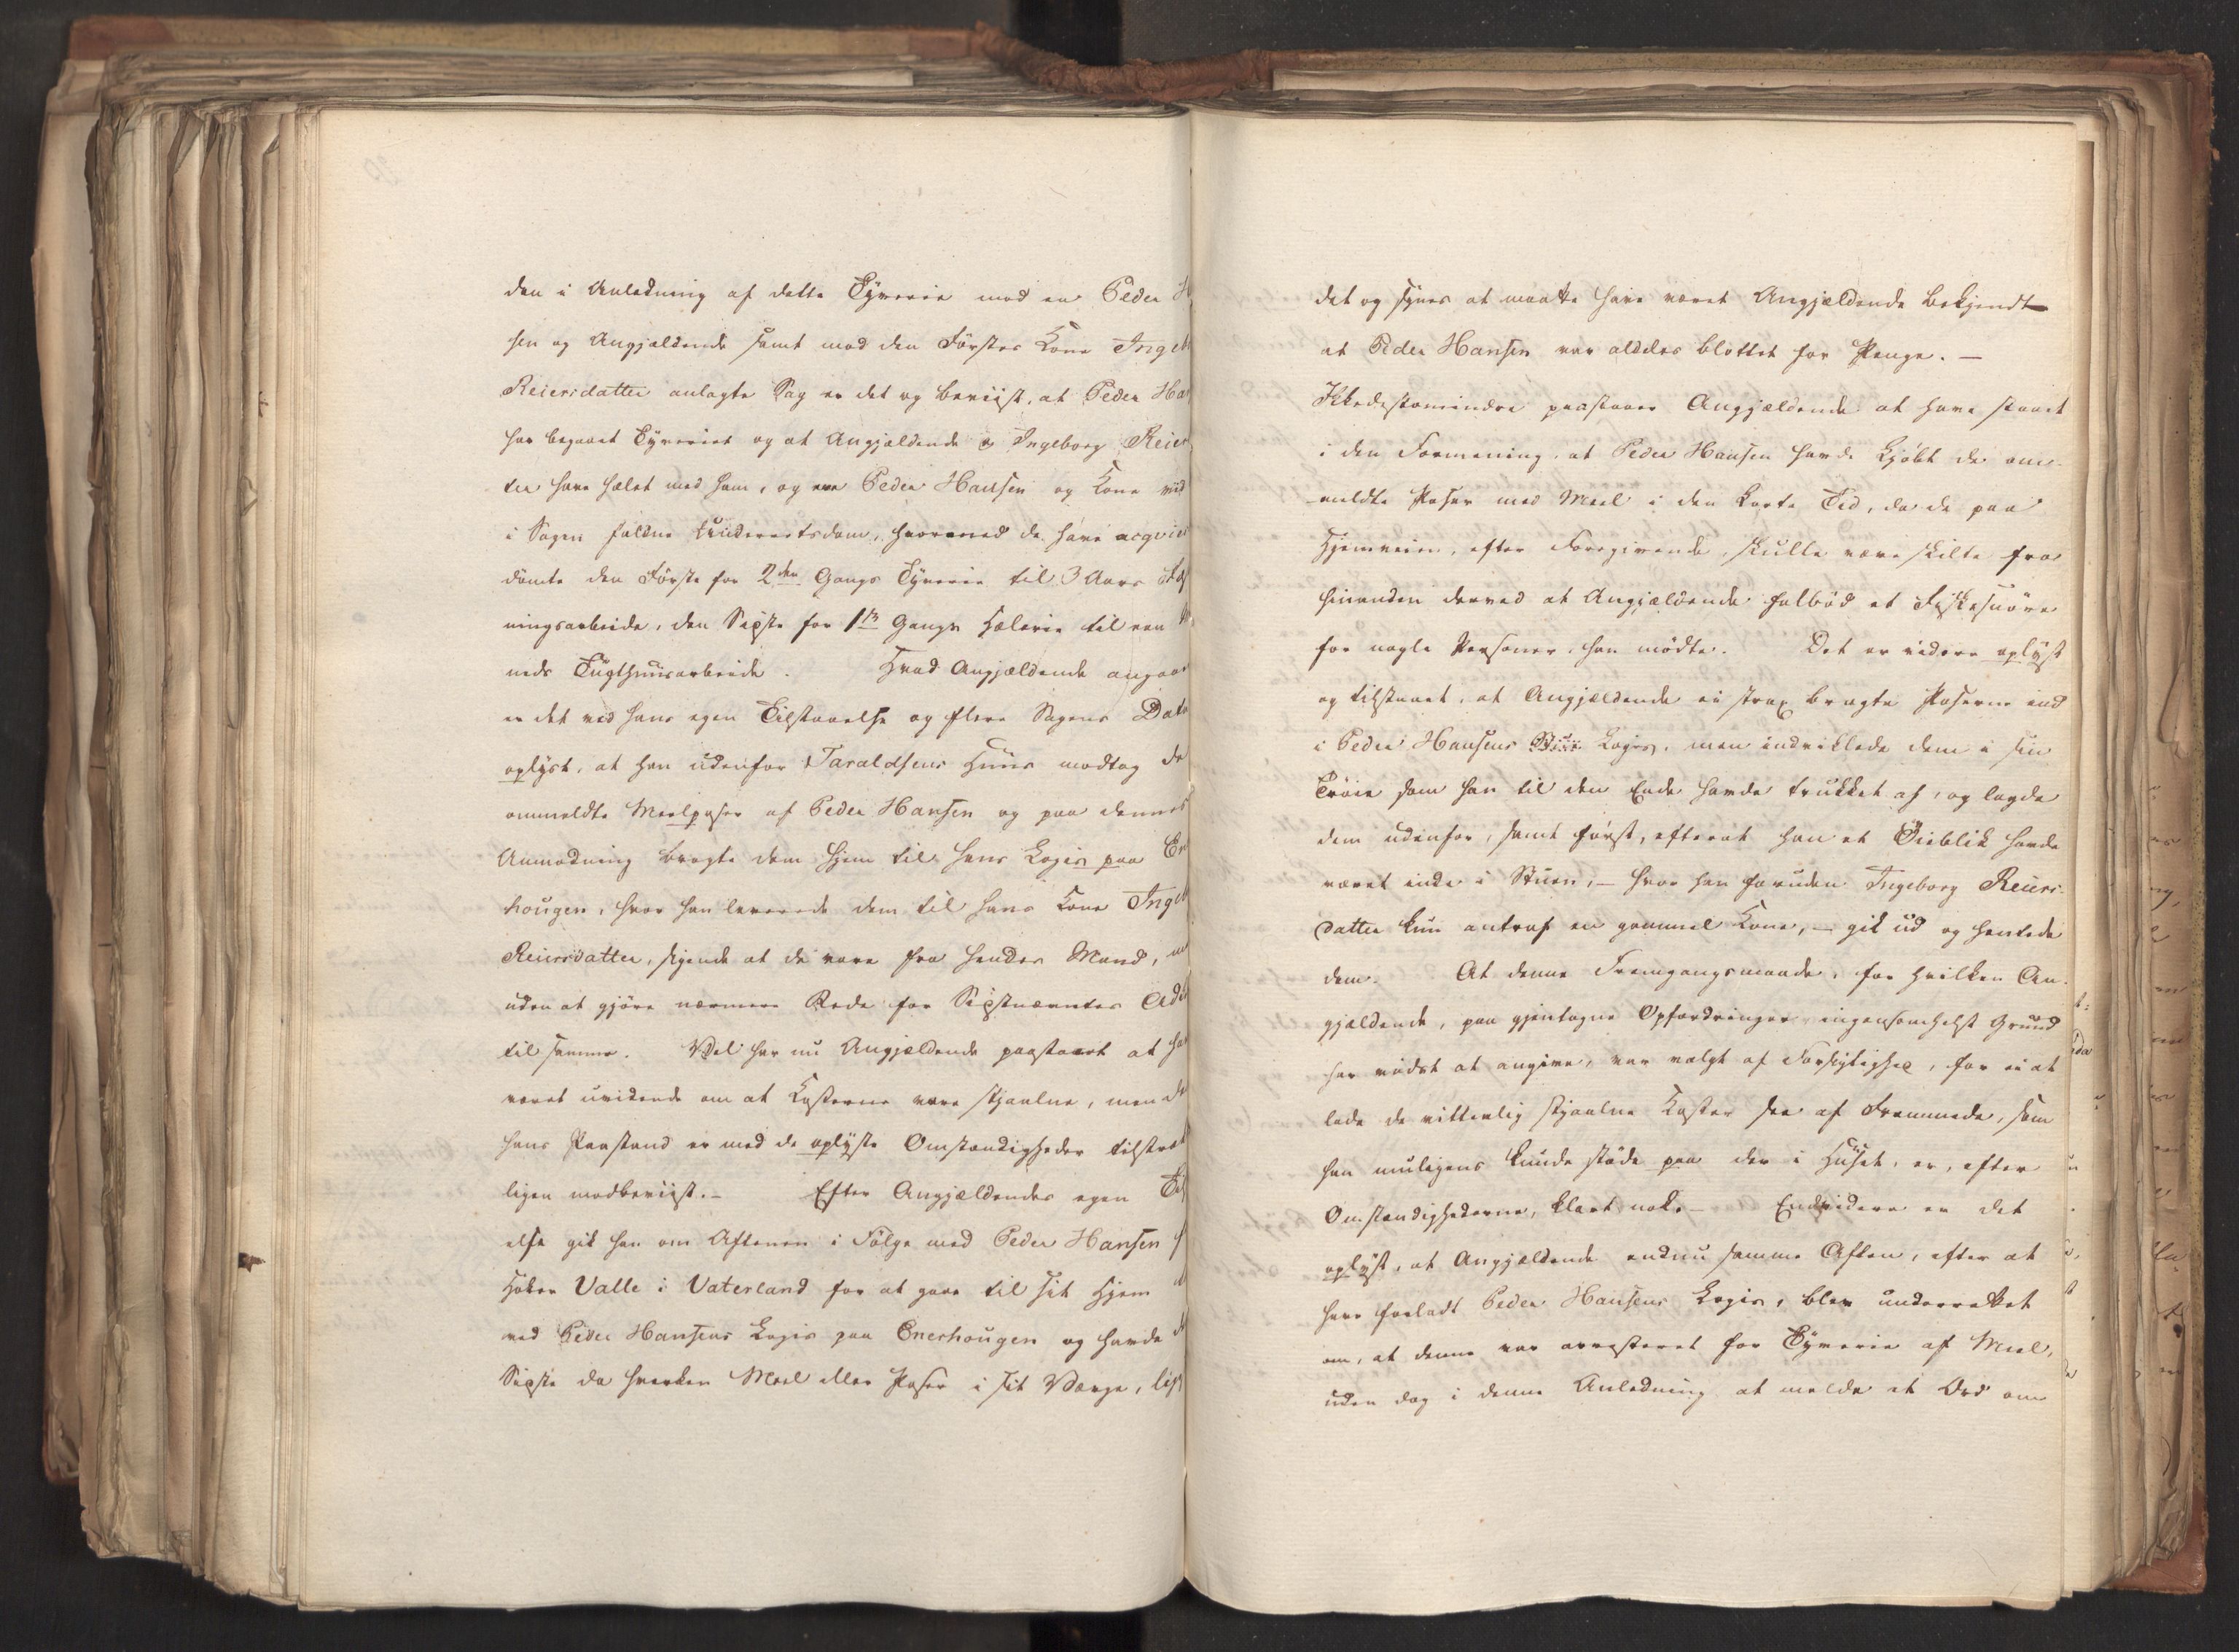 den i Anledning af dette Tyverie mod en Peder H
sen og Angjældende samt mod den Førstes Kone Ingeb
Reiersdatter anlagte Sag er det og beviist, at Peder Han
har begaaet Tyveriet og at Angjældende og Ingeborg Reiers
ter have hælet med ham, og ere Peder Hansen og Kone ved
i Sagen faldne Underretsdom, hvormed de have acqvies
dømte den Første for 2den Gangs Tyverie til 3 Aars Fæst
ningsarbeide, den Sidste for 1ste Gangs Hælerie til een M
neds Tugthuusarbeide. Hvad Angjældende angaaer
er det ved hans egen Tilstaaelse og flere Sagens Data
oplyst, at han udenfor Taraldsens Huus modtog de
ommeldte Meelposer af Peder Hansen og paa dennes
Anmodning bragte dem hjem til hans Logis paa En
hougen, hvor han leverede dem til hans Kone Ingeb
Reiersdatter, sigende at de vare fra hendes Mand, m
uden at gjøre nærmere Rede for Sidstnævntes Adk
til samme. Vel har nu Angjældende paastaaet at ha
været uvidende om at Kosterne vare stjaalne, men de
hans Paastand er med de oplyste Omstændigheder tilstræk
ligen modbeviist. – Efter Angjældendes egen Til
else gik han om Aftenen i Følge med Peder Hansen f
Høker Valle i Vaterland for at gaae til sit Hjem
ved Peder Hansens Logis paa Enerhougen og havde
Sidste da hverken Meel eller Poser i sit Værge, lig
det og synes at maatte have været Angjældende bekjendt
at Peder Hansen var aldeles blottet for Penge. –
Ikkedestomindre paastaaer Angjældende at have staaet
i den Formening, at Peder Hansen havde kjøbt de om-
meldte Poser med Meel i den korte Tid, da de paa
Hjemveien, efter Foregivende, skulle være skilte fra
hinanden derved at Angjældende falbød et Fiskesnøre
for nogle Personer, han mødte. Det er videre oplyst
og tilstaaet, at Angjældende ei strax bragte Poserne ind
i Peder Hansens Logis, men indviklede dem i sin
Trøie som han til den Ende havde trukket af, og lagde
dem udenfor, samt først, efterat han et Øieblik havde
været inde i Stuen, – hvor han foruden Ingeborg Reiers-
datter kun antraf en gammel Kone, – gik ud og hentede
dem. At denne Fremgangsmaade, for hvilken An-
gjældende, paa gjentagne Opfordringer ingensomhelst Grund
har vidst at angive, var valgt af Forsigtighed, for ei at
lade de vitterlig stjaalne Koster see af Fremmede, som
han muligens kunde støde paa der i Huset, er, efter
Omstændighederne, klart nok. – Endvidere er det
oplyst, at Angjældende endnu samme Aften, efter at
have forladt Peder Hansens Logis, blev underrettet
om, at denne var arresteret for Tyverie af Meel,
uden dog i denne Anledning at melde et Ord om